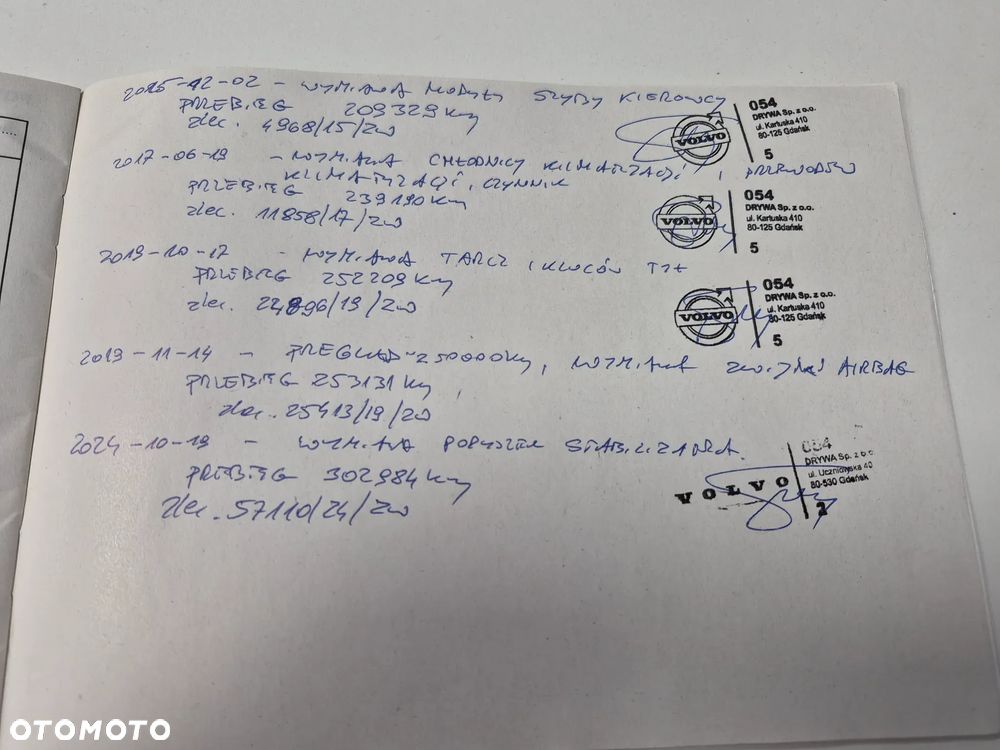 2015-12-02 - WYMIANA MODUŁU SZYBY KIEROWCY
PRZEBIEG 209329 km
zlec. 4968/15/ZW
054
DRYWA Sp. z o.o.
ul. Kartuska 410
80-125 Gdańsk
VOLVO
5
2017-06-19 - WYMIANA CHŁODNICY KLIMATYZACJI I PRZEWODÓW
KLIMATYZACJI, CZYNNIK
PRZEBIEG 239190 km
zlec. 11858/17/ZW
054
DRYWA Sp. z o.o.
ul. Kartuska 410
80-125 Gdańsk
VOLVO
5
2019-10-17 - WYMIANA TARCZ I KLOCÓW TYŁ
PRZEBIEG 252209 km
zlec. 24896/19/ZW
054
DRYWA Sp. z o.o.
ul. Kartuska 410
80-125 Gdańsk
VOLVO
5
2019-11-14 - PRZEGLĄD-250000km, WYMIANA AIRBAG
PRZEBIEG 253131 km
zlec. 25413/19/ZW
2024-10-19 - WYMIANA PODUSZEK STABILIZATORA.
PRZEBIEG 302984 km
zlec. 57110/24/ZW
054
DRYWA Sp. z o.o.
ul. Uczniowska 40
80-530 Gdańsk
VOLVO
2
OTOMOTO